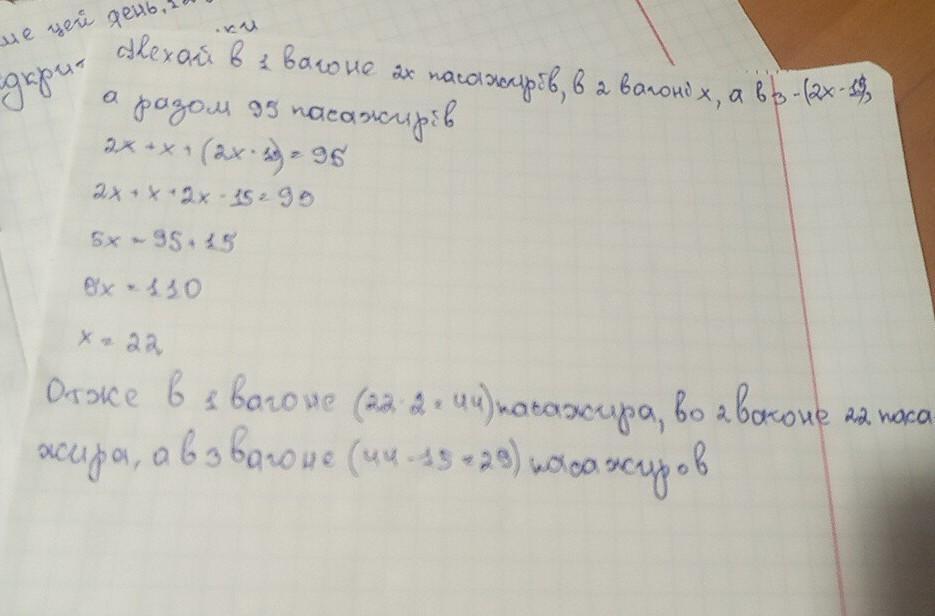 ме цей день,
ки
дкри
Нехай в 1 вагоне 2x пасажирів, в 2 вагоні x, а в 3 - (2x - 15),
а разом 95 пасажирів
2x + x + (2x - 15) = 95
2x + x + 2x - 15 = 95
5x = 95 + 15
5x = 110
x = 22
Отже в 1 вагоне (22 · 2 = 44) пасажира, во 2 вагоне 22 паса-
жира, а в 3 вагоне (44 - 15 = 29) пасажиров